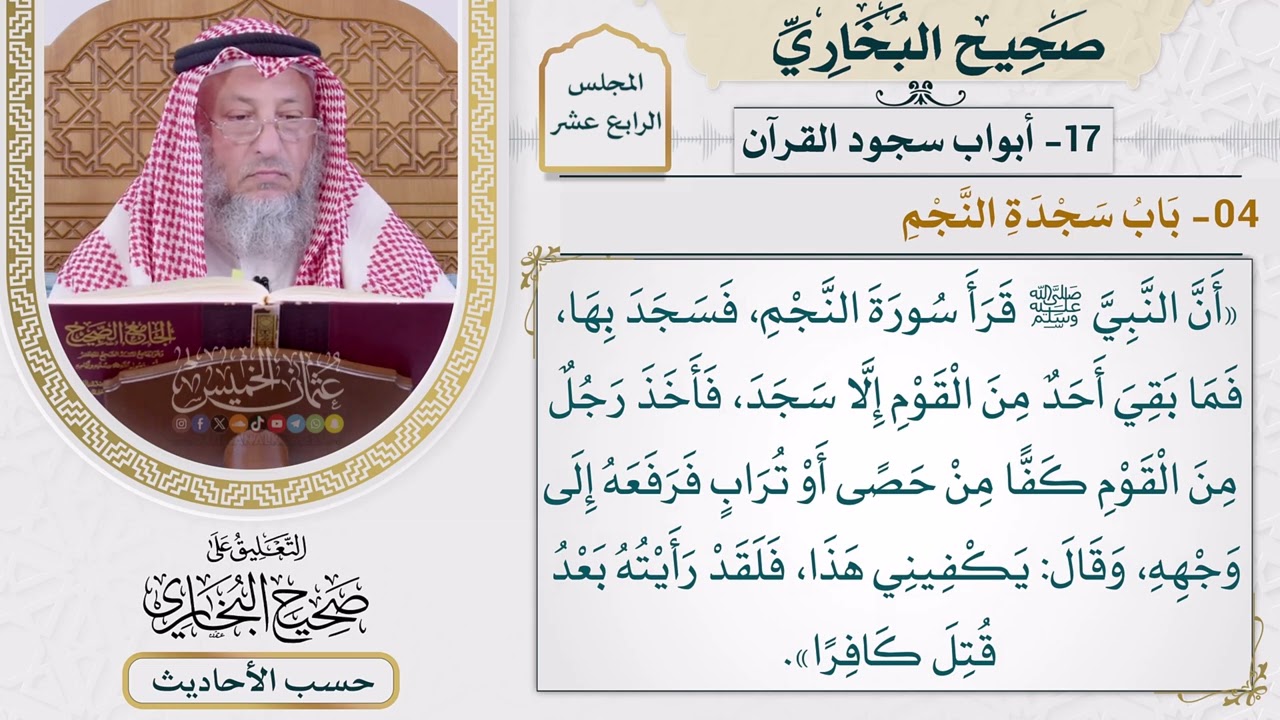 صَحِيح البُخَارِيِّ
المجلس
الرابع عشر
17- أبواب سجود القرآن
04- بَابُ سَجْدَةِ النَّجْمِ
«أَنَّ النَّبِيَّ ﷺ قَرَأَ سُورَةَ النَّجْمِ، فَسَجَدَ بِهَا،
فَمَا بَقِيَ أَحَدٌ مِنَ الْقَوْمِ إِلَّا سَجَدَ، فَأَخَذَ رَجُلٌ
مِنَ الْقَوْمِ كَفًّا مِنْ حَصًى أَوْ تُرَابٍ فَرَفَعَهُ إِلَى
وَجْهِهِ، وَقَالَ: يَكْفِينِي هَذَا، فَلَقَدْ رَأَيْتُهُ بَعْدُ
قُتِلَ كَافِرًا».
الجامع الصحيح
عثمان الخميس
التَّعْلِيقُ عَلَى
صَحِيح البُخَارِي
حسب الأحاديث